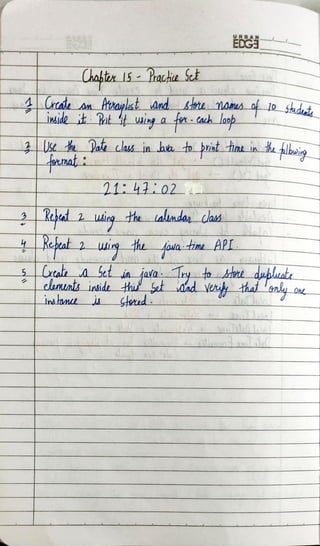 URBAN
EDGE
Chapter 15 - Practice Set
1 Create an Arraylist and store names of 10 students
inside it Prit it using a for-each loop
2 Use the Date class in Java to print time in the following
format :
21: 47: 02
3 Repeat 2 using the calendar class
4 Repeat 2 using the java.time API
5 Create a Set in java. Try to store duplicate
elements inside this Set and verify that only one
instance is Stored.